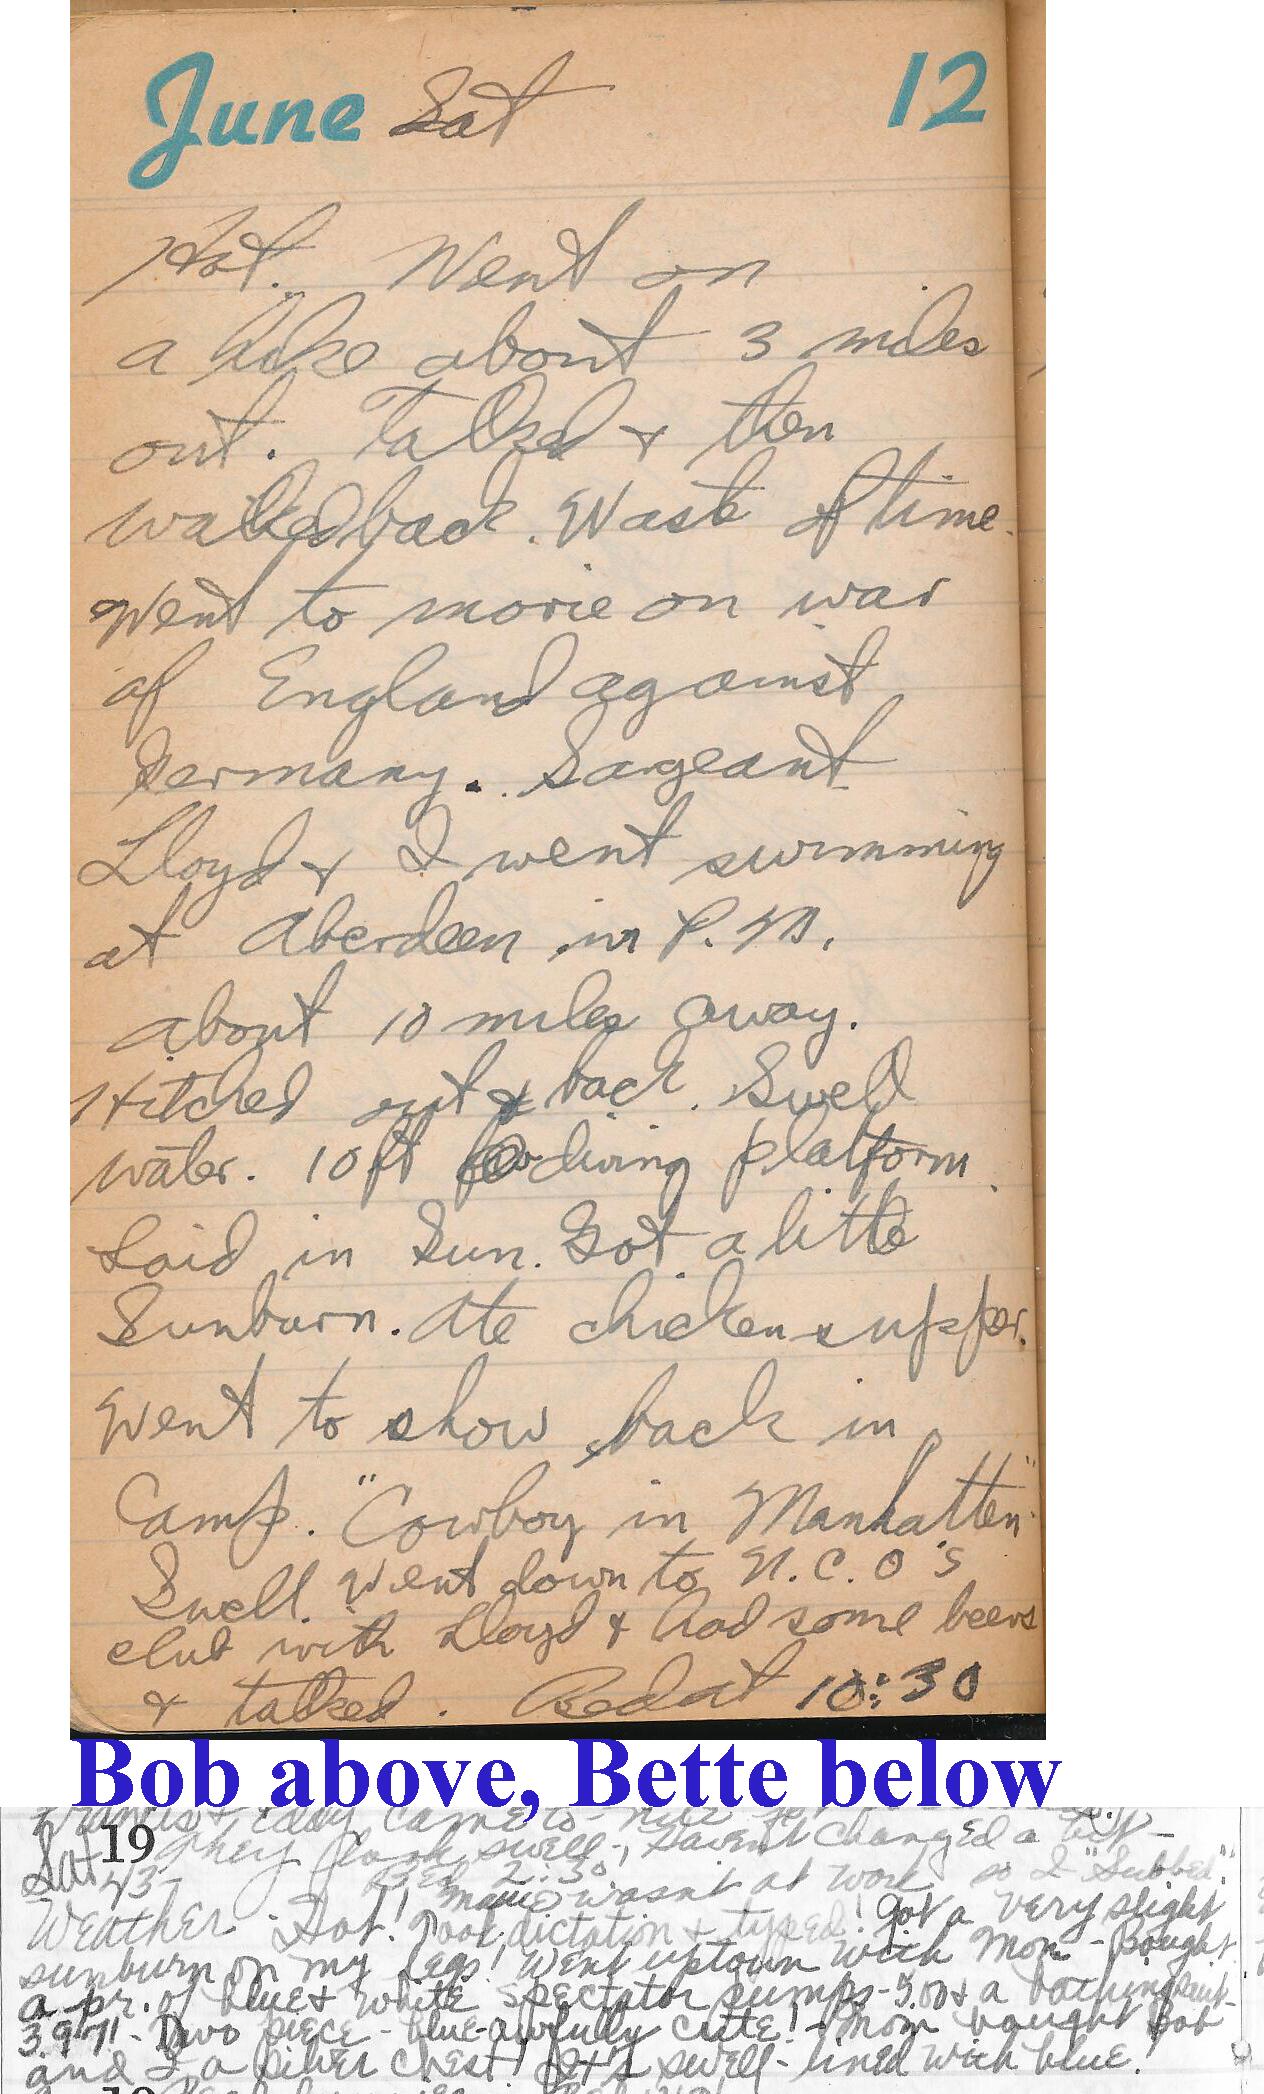 June Sat 12
Hot. Went on
a hike about 3 miles
out. Talked & then
walked back. Waste of time.
Went to movie on war
of England against
Germany. Sargeant
Lloyd & I went swimming
at Aberdeen in P.M.
about 10 miles away.
Hitched out & back. Swell
water. 10 ft diving platform.
Laid in Sun. Got a little
Sunburn. Ate chicken supper.
Went to show back in
Camp. "Cowboy in Manhatten"
Swell. Went down to N.C.O's
club with Lloyd & had some beers
& talked. Bed at 10:30
Bob above, Bette below
& Eddy came to
Sat 19 They look swell-, haven't changed a bit-
43- Bed 2:30
wasn't at work so I "Subbed".
Weather Hot! Took dictation & typed! Got a very slight
sunburn on my legs! Went uptown with Mom - Bought
a pr. of blue & white spectator pumps - 5.00 & a bathing suit-
3.97! Two piece - blue - awfully cute! - Mom bought Bob
and I a silver chest! It's swell - lined with blue!